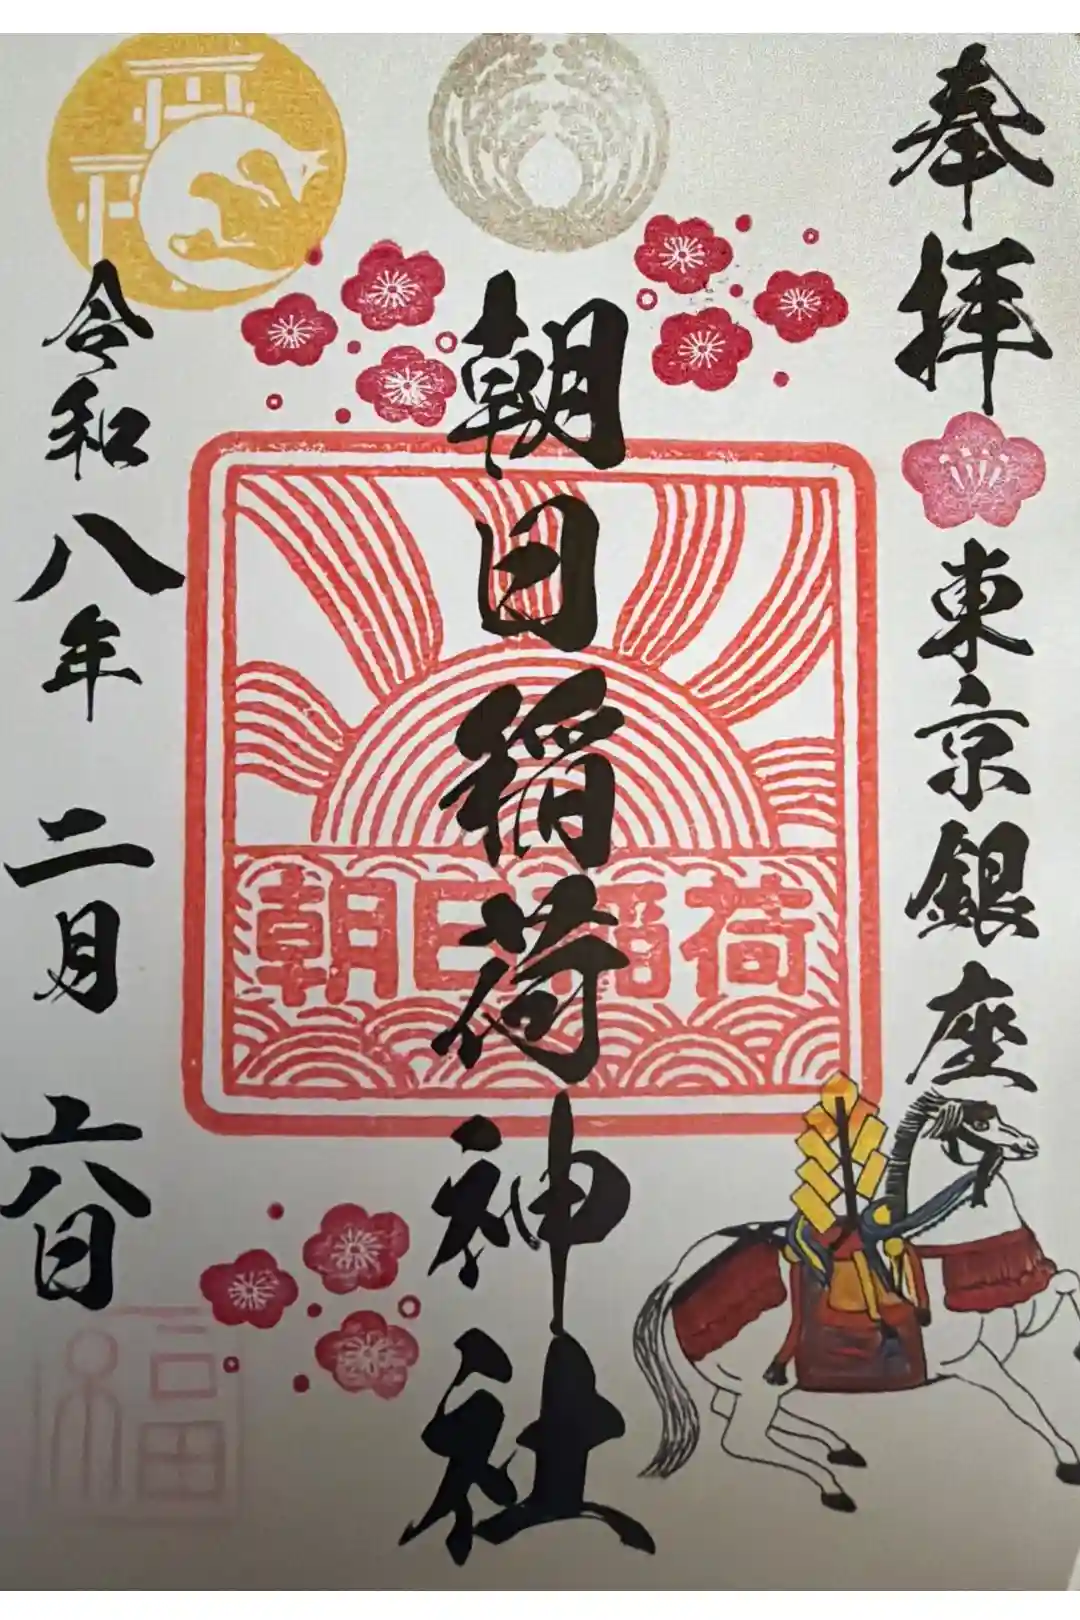 奉拝
東京銀座
朝日稲荷神社
朝日稲荷
令和八年 二月 六日
福